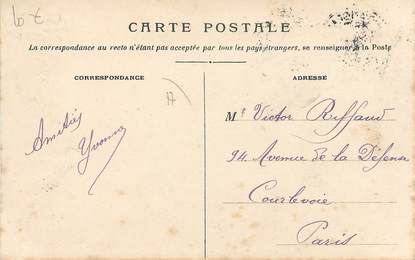 CARTE POSTALE
La correspondance au recto n'étant pas acceptée par tous les pays étrangers, se renseigner à la Poste
CORRESPONDANCE
ADRESSE
Amitiés
Yvonne
Mr Victor Riffaud
94 Avenue de la Défense
Courbevoie
Paris